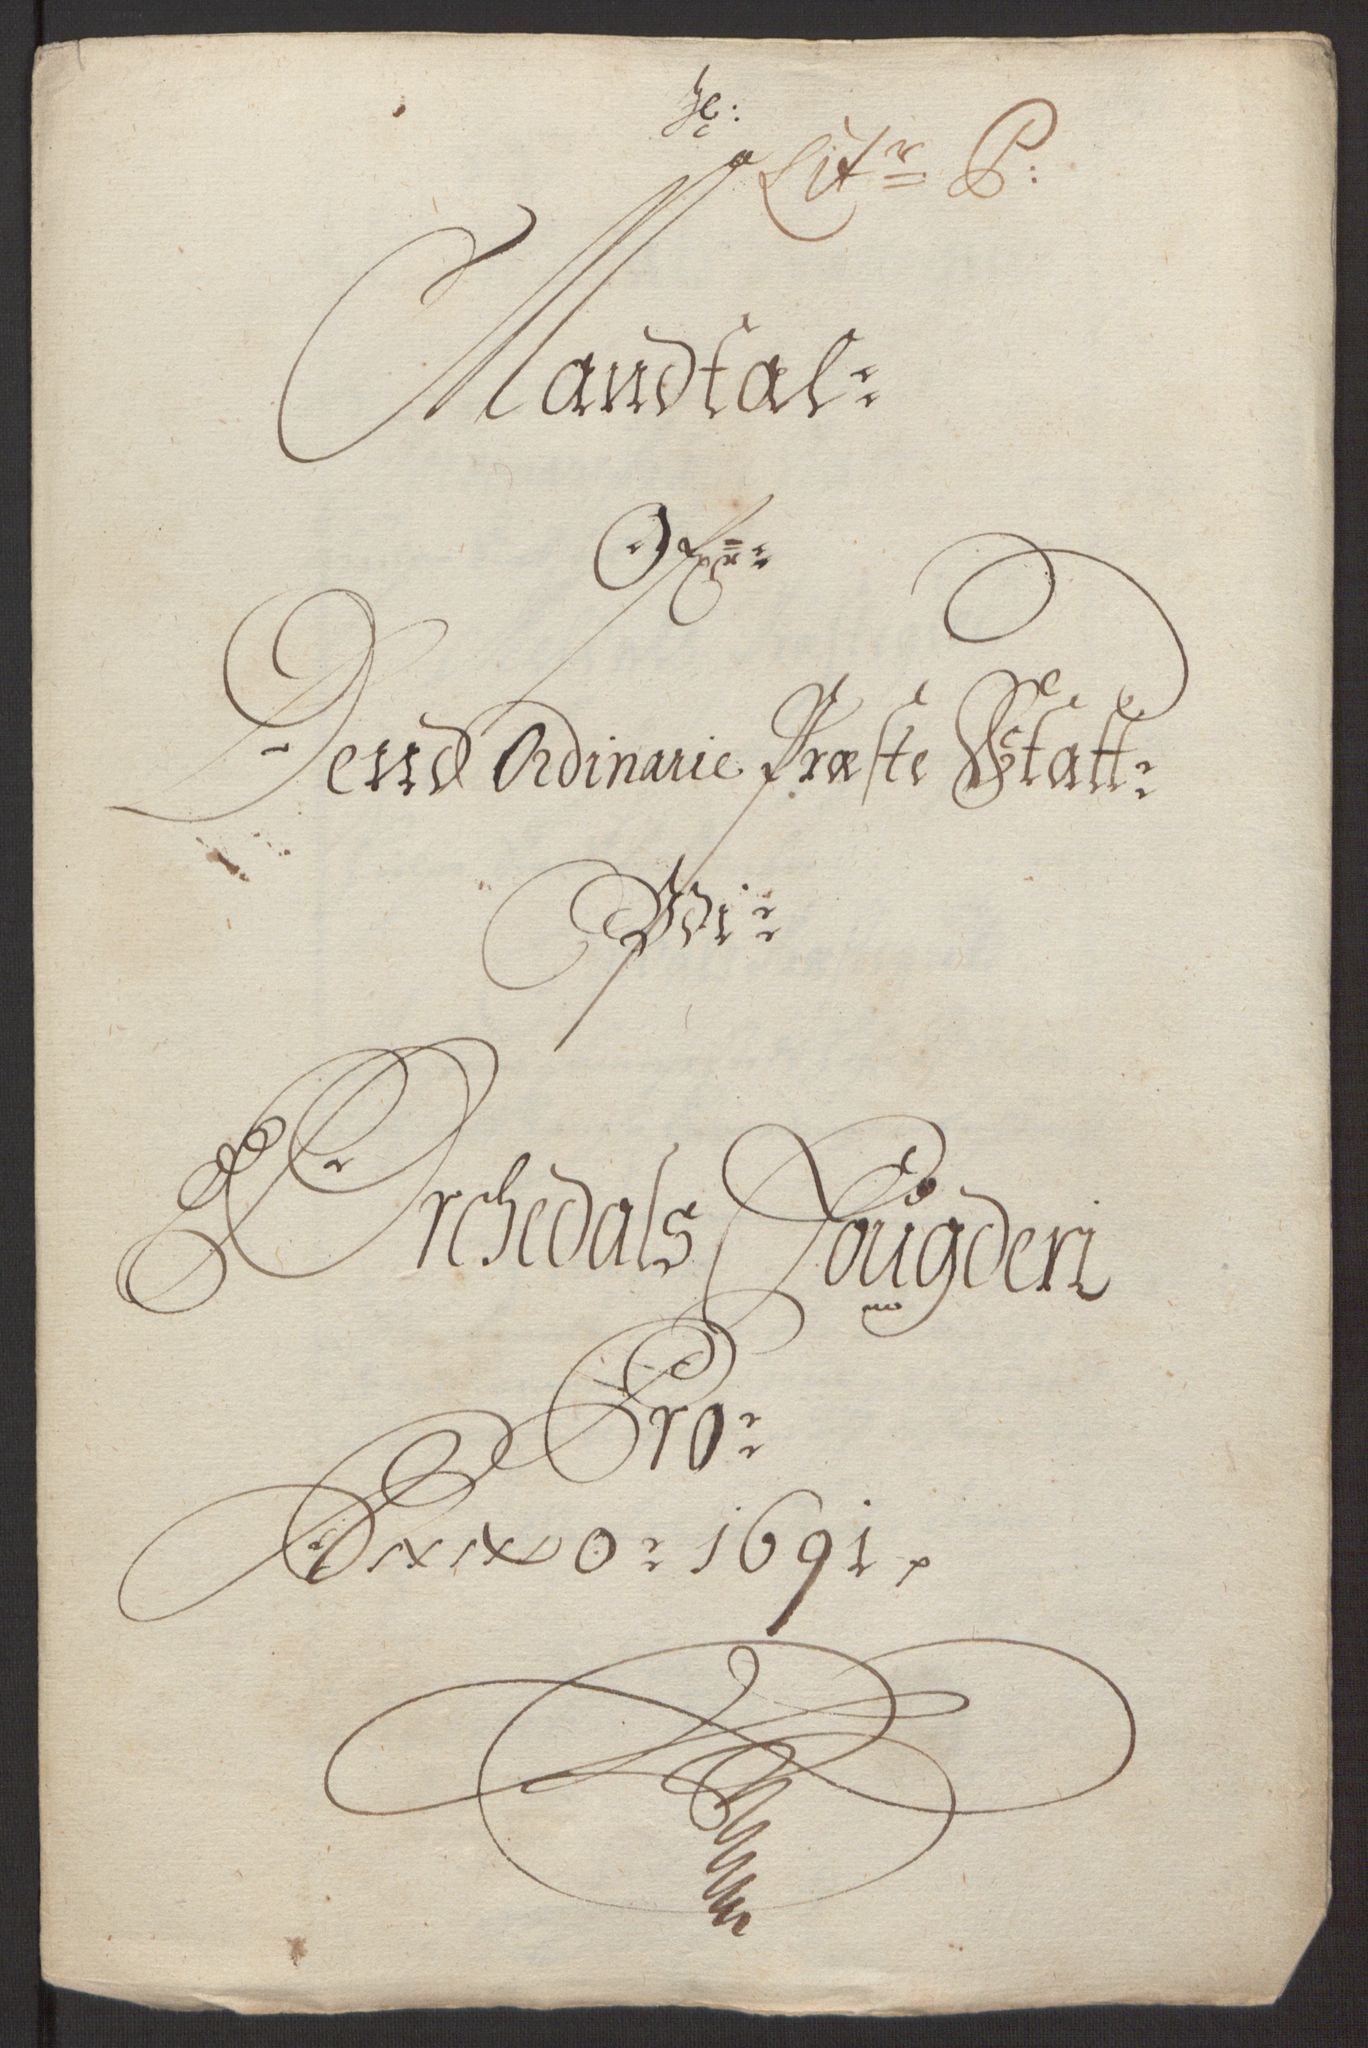 Litr P:
Mandtal
Ofr
Dend Ordinarie Præste Skatt
Wi
Orchedals Fougderi
Pro
Anno 1691